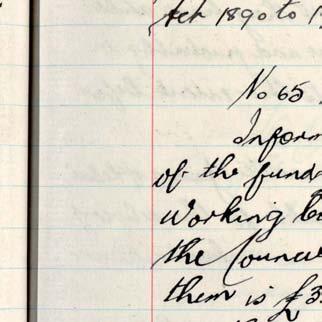 Act 1890 to 1
No 65
Inform
of the fund
Working b
the Counci
them is £3